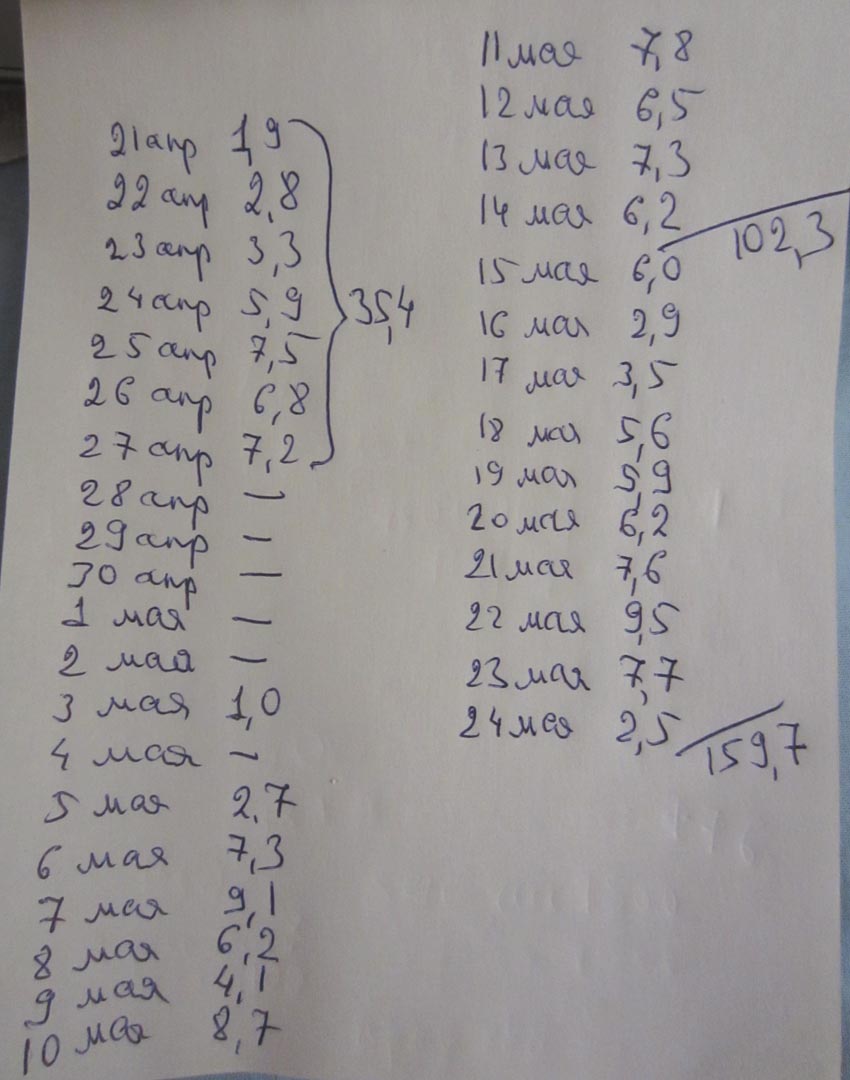 21 апр 1,9
22 апр 2,8
23 апр 3,3
24 апр 5,9
25 апр 7,5
26 апр 6,8
27 апр 7,2
35,4
28 апр —
29 апр —
30 апр —
1 мая —
2 мая —
3 мая 1,0
4 мая —
5 мая 2,7
6 мая 7,3
7 мая 9,1
8 мая 6,2
9 мая 4,1
10 мая 8,7
11 мая 7,8
12 мая 6,5
13 мая 7,3
14 мая 6,2
102,3
15 мая 6,0
16 мая 2,9
17 мая 3,5
18 мая 5,6
19 мая 5,9
20 мая 6,2
21 мая 7,6
22 мая 9,5
23 мая 7,7
24 мая 2,5
159,7